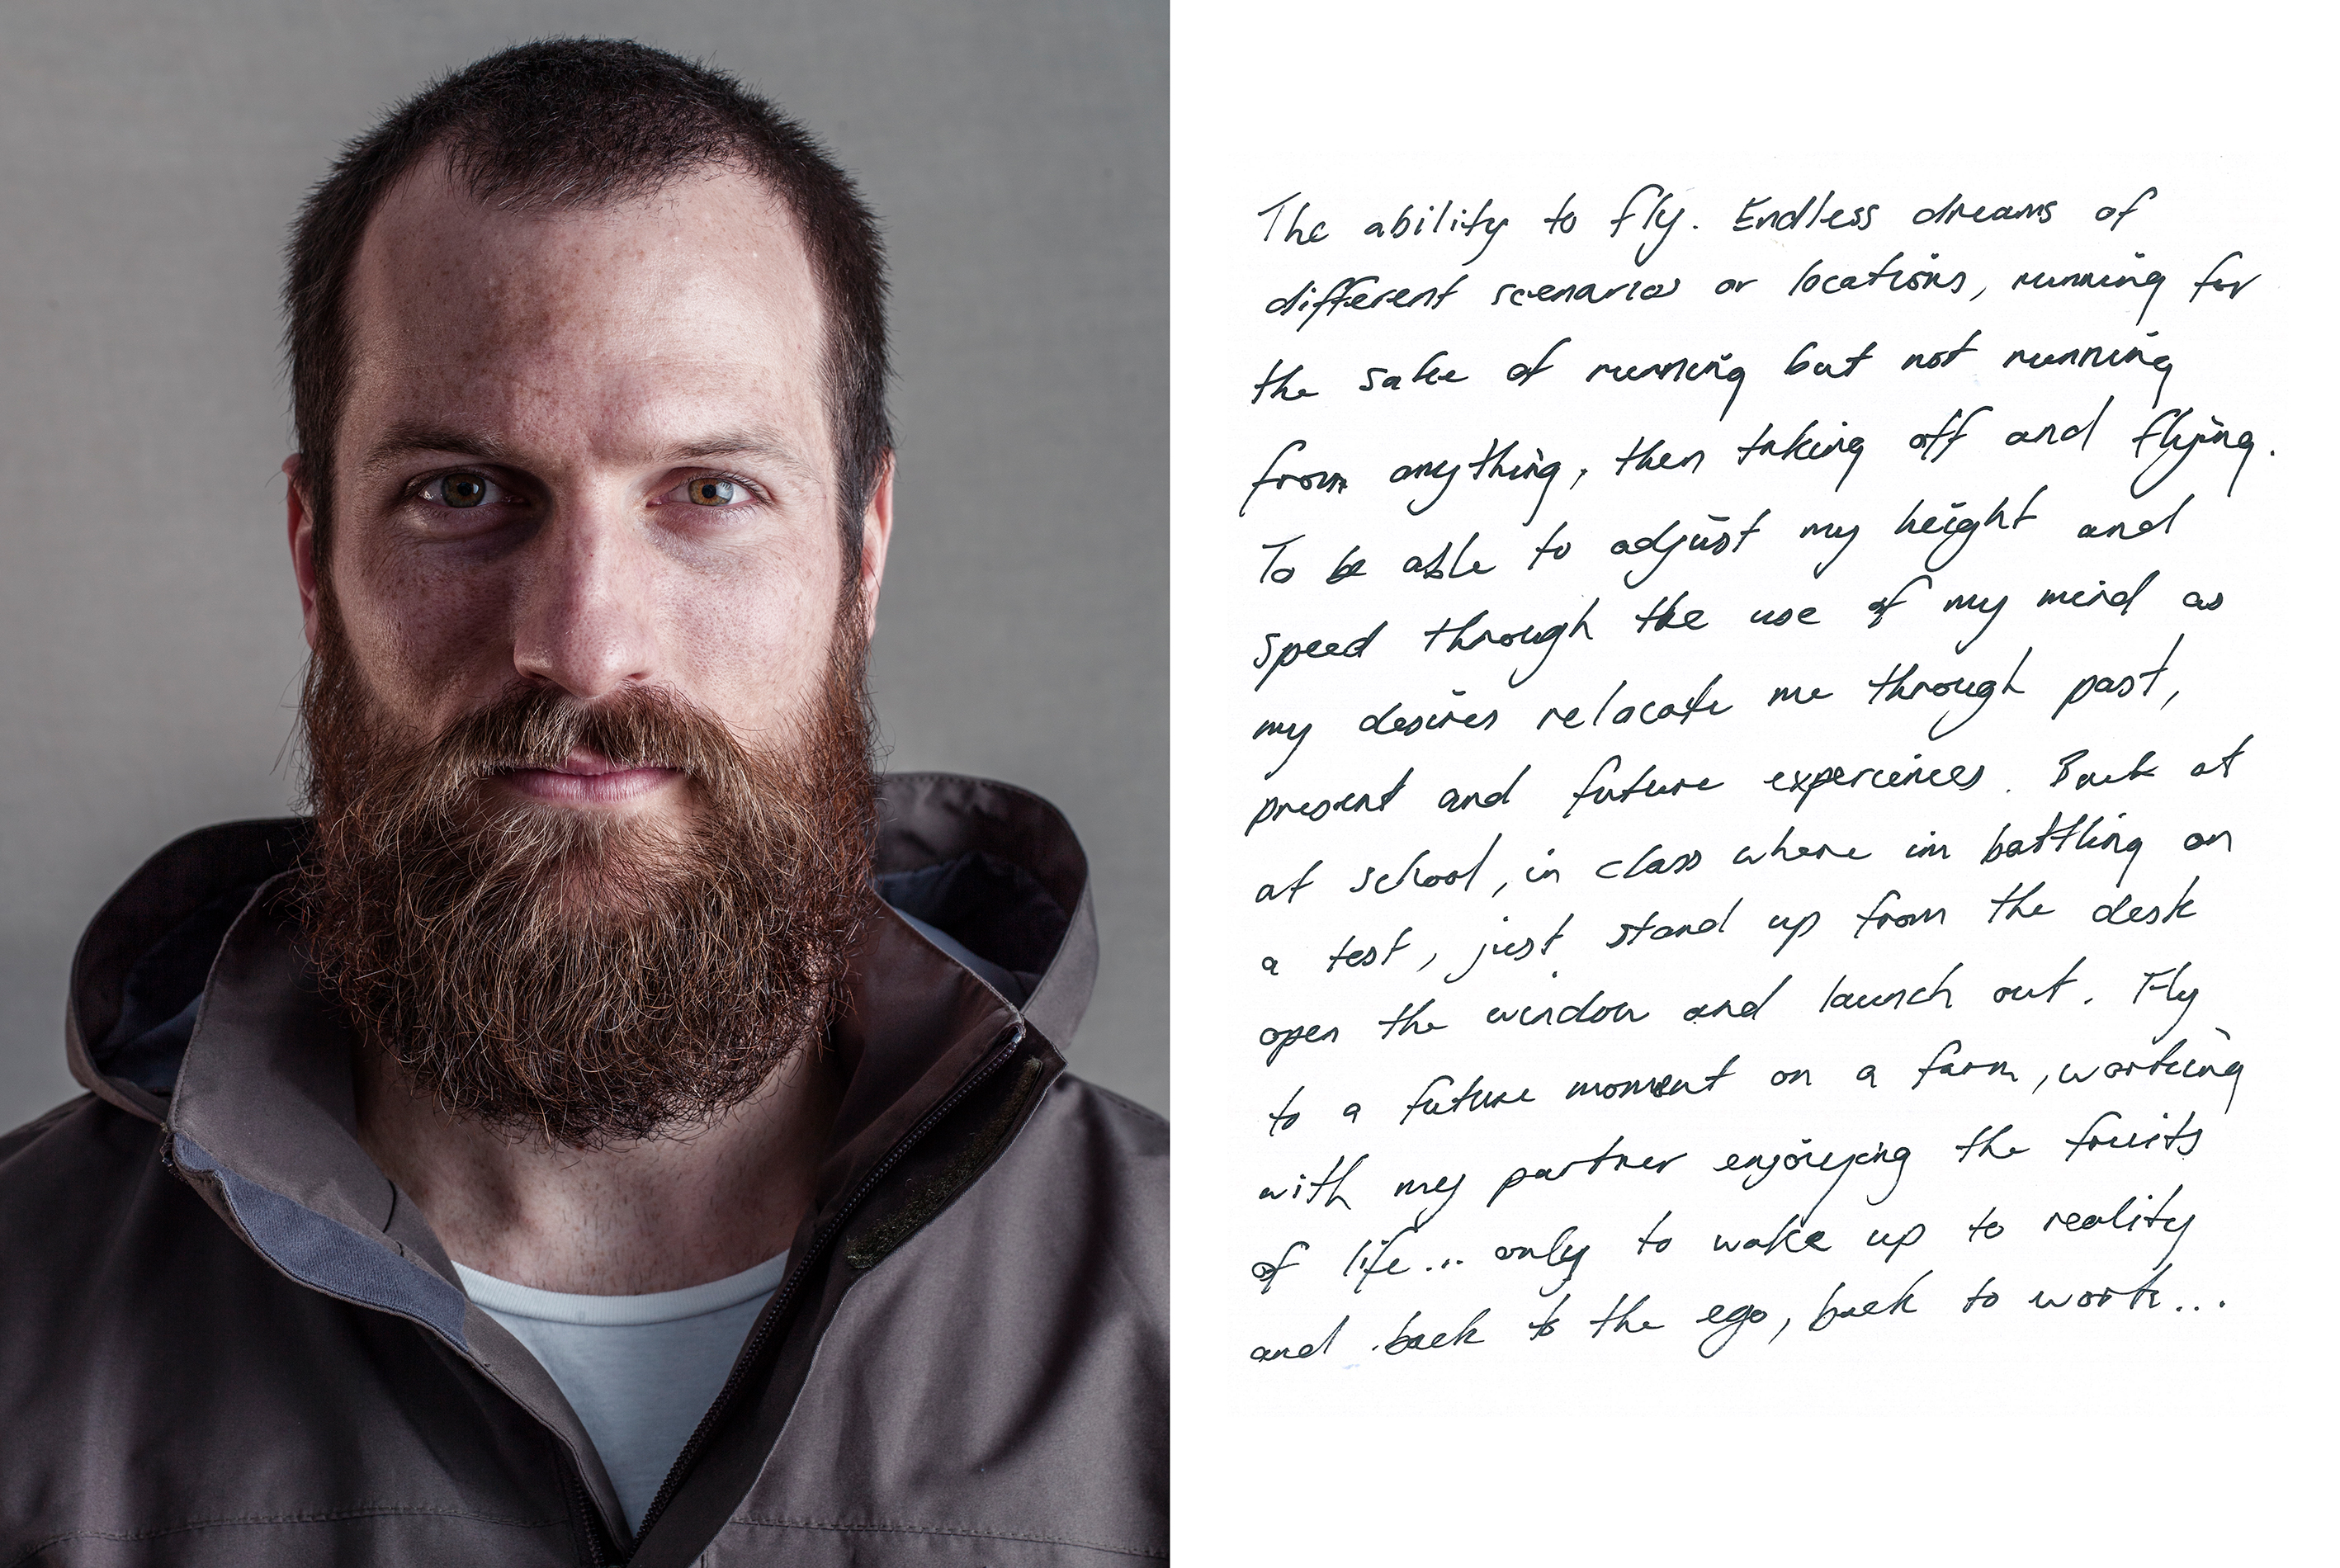 The ability to fly. Endless dreams of
different scenarios or locations, running for
the sake of running but not running
from anything, then taking off and flying.
To be able to adjust my height and
speed through the use of my mind as
my desires relocate me through past,
present and future experiences. Back at
at school, in class where im battling on
a test, just stand up from the desk
open the window and launch out. Fly
to a future moment on a farm, working
with my partner enjoying the fruits
of life... only to wake up to reality
and back to the ego, back to work...